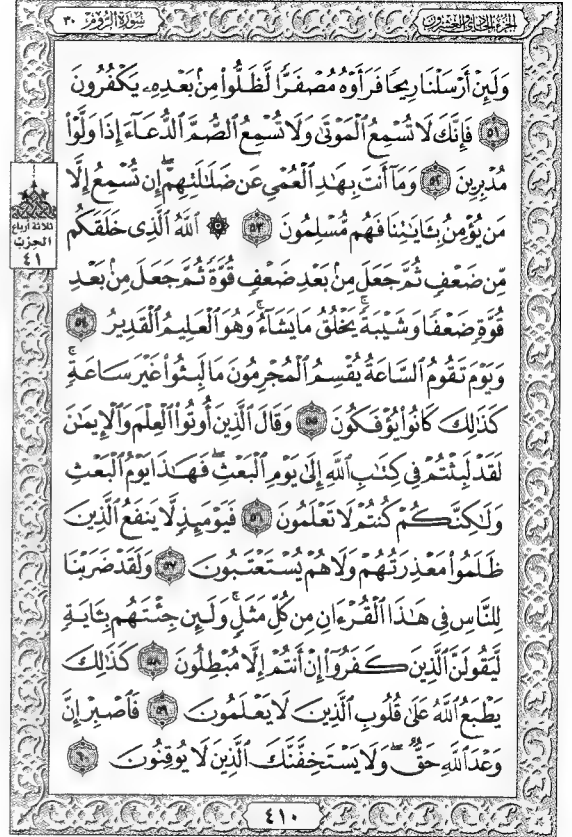 سُورَةُ الرُّومِ ٣٠
الجُزءُ الحَادِي وَالعِشرُونَ
وَلَئِنْ أَرْسَلْنَا رِيحًا فَرَأَوْهُ مُصْفَرًّا لَّظَلُّوا۟ مِنۢ بَعْدِهِۦ يَكْفُرُونَ
٥١ فَإِنَّكَ لَا تُسْمِعُ ٱلْمَوْتَىٰ وَلَا تُسْمِعُ ٱلصُّمَّ ٱلدُّعَآءَ إِذَا وَلَّوْا۟
مُدْبِرِينَ ٥٢ وَمَآ أَنتَ بِهَٰدِ ٱلْعُمْىِ عَن ضَلَٰلَتِهِمْ ۖ إِن تُسْمِعُ إِلَّا
مَن يُؤْمِنُ بِـَٔايَٰتِنَا فَهُم مُّسْلِمُونَ ٥٣ ۞ ٱللَّهُ ٱلَّذِى خَلَقَكُم
مِّن ضَعْفٍ ثُمَّ جَعَلَ مِنۢ بَعْدِ ضَعْفٍ قُوَّةً ثُمَّ جَعَلَ مِنۢ بَعْدِ
قُوَّةٍ ضَعْفًا وَشَيْبَةً ۚ يَخْلُقُ مَا يَشَآءُ ۖ وَهُوَ ٱلْعَلِيمُ ٱلْقَدِيرُ ٥٤
وَيَوْمَ تَقُومُ ٱلسَّاعَةُ يُقْسِمُ ٱلْمُجْرِمُونَ مَا لَبِثُوا۟ غَيْرَ سَاعَةٍ ۚ
كَذَٰلِكَ كَانُوا۟ يُؤْفَكُونَ ٥٥ وَقَالَ ٱلَّذِينَ أُوتُوا۟ ٱلْعِلْمَ وَٱلْإِيمَٰنَ
لَقَدْ لَبِثْتُمْ فِى كِتَٰبِ ٱللَّهِ إِلَىٰ يَوْمِ ٱلْبَعْثِ ۖ فَهَٰذَا يَوْمُ ٱلْبَعْثِ
وَلَٰكِنَّكُمْ كُنتُمْ لَا تَعْلَمُونَ ٥٦ فَيَوْمَئِذٍ لَّا يَنفَعُ ٱلَّذِينَ
ظَلَمُوا۟ مَعْذِرَتُهُمْ وَلَا هُمْ يُسْتَعْتَبُونَ ٥٧ وَلَقَدْ ضَرَبْنَا
لِلنَّاسِ فِى هَٰذَا ٱلْقُرْءَانِ مِن كُلِّ مَثَلٍ ۚ وَلَئِن جِئْتَهُم بِـَٔايَةٍ
لَّيَقُولَنَّ ٱلَّذِينَ كَفَرُوٓا۟ إِنْ أَنتُمْ إِلَّا مُبْطِلُونَ ٥٨ كَذَٰلِكَ
يَطْبَعُ ٱللَّهُ عَلَىٰ قُلُوبِ ٱلَّذِينَ لَا يَعْلَمُونَ ٥٩ فَٱصْبِرْ إِنَّ
وَعْدَ ٱللَّهِ حَقٌّ ۖ وَلَا يَسْتَخِفَّنَّكَ ٱلَّذِينَ لَا يُوقِنُونَ ٦٠
ثلاثة أرباع
الحزب
٤١
٤١٠